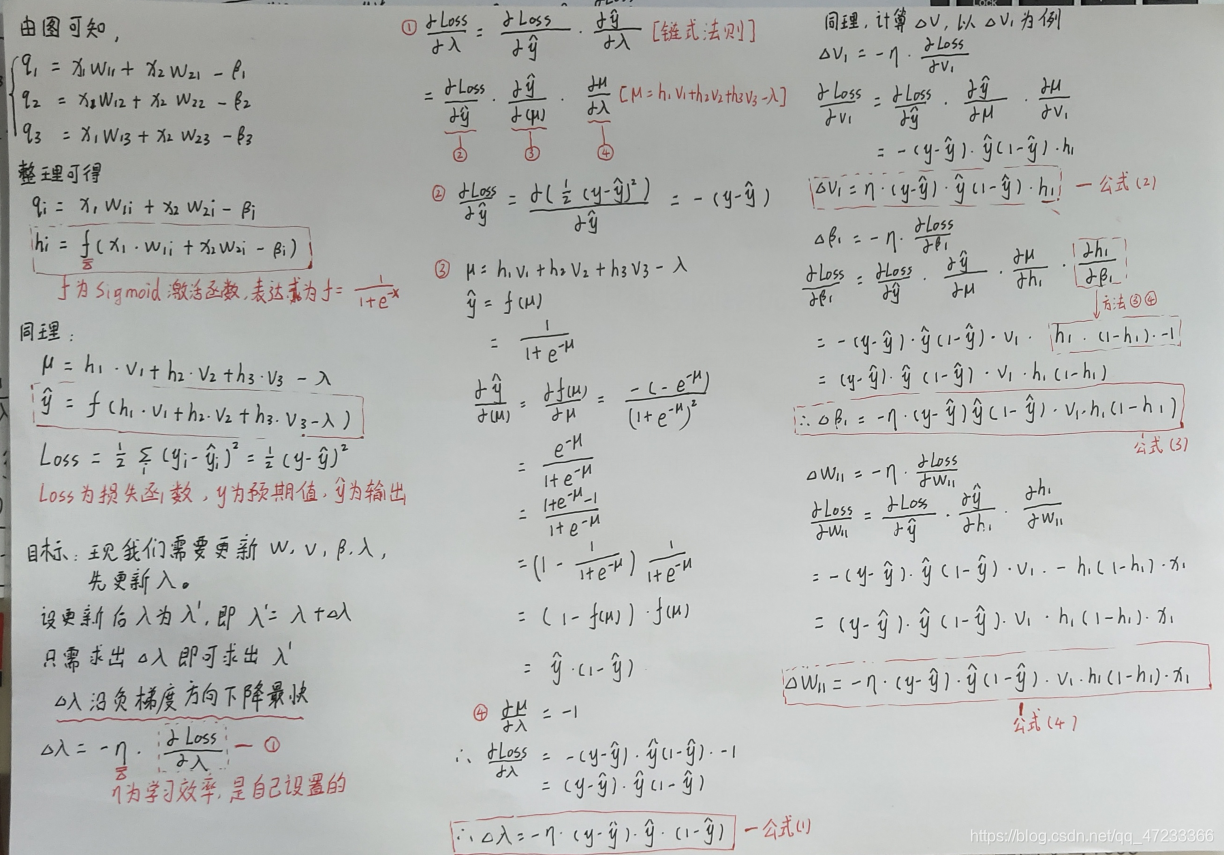 由图可知,
q₁ = x₁w₁₁ + x₂w₂₁ - β₁
q₂ = x₁w₁₂ + x₂w₂₂ - β₂
q₃ = x₁w₁₃ + x₂w₂₃ - β₃
整理可得
qᵢ = x₁w₁ᵢ + x₂w₂ᵢ - βᵢ
hᵢ = f(x₁·w₁ᵢ + x₂w₂ᵢ - βᵢ)
f为Sigmoid激活函数,表达式为f = 1/(1+e^-x)
同理:
μ = h₁·v₁ + h₂·v₂ + h₃·v₃ - λ
ŷ = f(h₁·v₁ + h₂·v₂ + h₃·v₃ - λ)
Loss = ½ Σᵢ(yᵢ-ŷᵢ)² = ½(y-ŷ)²
Loss为损失函数,y为预期值,ŷ为输出
目标:现我们需要更新 w,v,β,λ,
先更新λ。
设更新后λ为λ',即 λ' = λ + △λ
只需求出 △λ 即可求出 λ'
△λ沿负梯度方向下降最快
△λ = -η · ∂Loss/∂λ — ①
η为学习效率,是自己设置的
① ∂Loss/∂λ = ∂Loss/∂ŷ · ∂ŷ/∂λ [链式法则]
= ∂Loss/∂ŷ · ∂ŷ/∂(μ) · ∂μ/∂λ [μ = h₁v₁+h₂v₂+h₃v₃-λ]
② ③ ④
② ∂Loss/∂ŷ = ∂(½(y-ŷ)²)/∂ŷ = -(y-ŷ)
③ μ = h₁v₁ + h₂v₂ + h₃v₃ - λ
ŷ = f(μ)
= 1/(1+e^-μ)
∂ŷ/∂(μ) = ∂f(μ)/∂μ = -(-e^-μ)/(1+e^-μ)²
= e^-μ/(1+e^-μ)
= (1+e^-μ-1)/(1+e^-μ)
= (1 - 1/(1+e^-μ)) 1/(1+e^-μ)
= (1-f(μ))·f(μ)
= ŷ·(1-ŷ)
④ ∂μ/∂λ = -1
∴ ∂Loss/∂λ = -(y-ŷ)·ŷ(1-ŷ)·-1
= (y-ŷ)·ŷ(1-ŷ)
∴ △λ = -η·(y-ŷ)·ŷ·(1-ŷ) — 公式(1)
同理,计算△V,以△V₁为例
△V₁ = -η · ∂Loss/∂V₁
∂Loss/∂V₁ = ∂Loss/∂ŷ · ∂ŷ/∂μ · ∂μ/∂V₁
= -(y-ŷ)·ŷ(1-ŷ)·h₁
△V₁ = η·(y-ŷ)·ŷ(1-ŷ)·h₁ — 公式(2)
△β₁ = -η · ∂Loss/∂β₁
∂Loss/∂β₁ = ∂Loss/∂ŷ · ∂ŷ/∂μ · ∂μ/∂h₁ · ∂h₁/∂β₁
方法③④
= -(y-ŷ)·ŷ(1-ŷ)·v₁·h₁·(1-h₁)·-1
= (y-ŷ)·ŷ(1-ŷ)·v₁·h₁(1-h₁)
∴ △β₁ = -η·(y-ŷ)ŷ(1-ŷ)·v₁·h₁(1-h₁)
公式(3)
△W₁₁ = -η · ∂Loss/∂W₁₁
∂Loss/∂W₁₁ = ∂Loss/∂ŷ · ∂ŷ/∂h₁ · ∂h₁/∂W₁₁
= -(y-ŷ)·ŷ(1-ŷ)·v₁·-h₁(1-h₁)·x₁
= (y-ŷ)·ŷ(1-ŷ)·v₁·h₁(1-h₁)·x₁
△W₁₁ = -η·(y-ŷ)·ŷ(1-ŷ)·v₁·h₁(1-h₁)·x₁
公式(4)
https://blog.csdn.net/qq_47233366